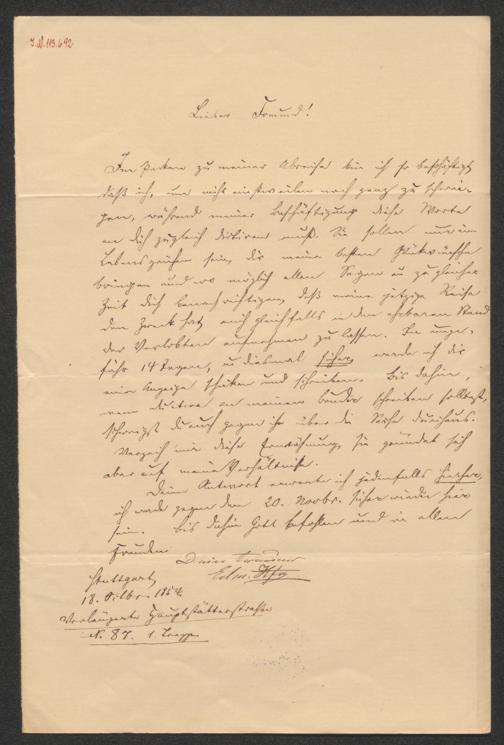 I.N. 113.692
Lieber Freund!
Im Packen zu meiner Abreise bin ich so beschäftigt,
daß ich, um nicht einstweilen noch ganz zu schwei-
gen, während meiner Beschäftigung diese Worte
an Dich zugleich diktiren muß. Sie sollen nur ein
Lebenszeichen sein, dir meine besten Glückwünsche
bringen und wo möglich allen Segen u zu gleicher
Zeit dich benachrichtigen, daß meine jetzige Reise
den Zweck hat, mich gleichfalls in den ehrbaren Stand
der Verlobten aufnehmen zu lassen. In unge-
fähr 14 Tagen, u diesmal sicher, werde ich dir
eine Anzeige schicken und schreiben. Bis dahin,
wenn du etwa an meinen Bruder schreiben solltest,
schweigst du auch gegen ihn über die Reise durchaus.
Verzeih mir diese Erwähnung, sie gründet sich
aber auf meine Verhältnisse.
Dein Antwort erwarte ich jedenfalls hierher,
ich werde gegen den 20. Novbr. sicher wieder hier
sein. Bis dahin Gott befohlen und in allen
Freuden
Deiner
Edm.
Stuttgart
18. 1854.
Verlängerte Hauptstätterstraße
N. 87. 1. Treppe